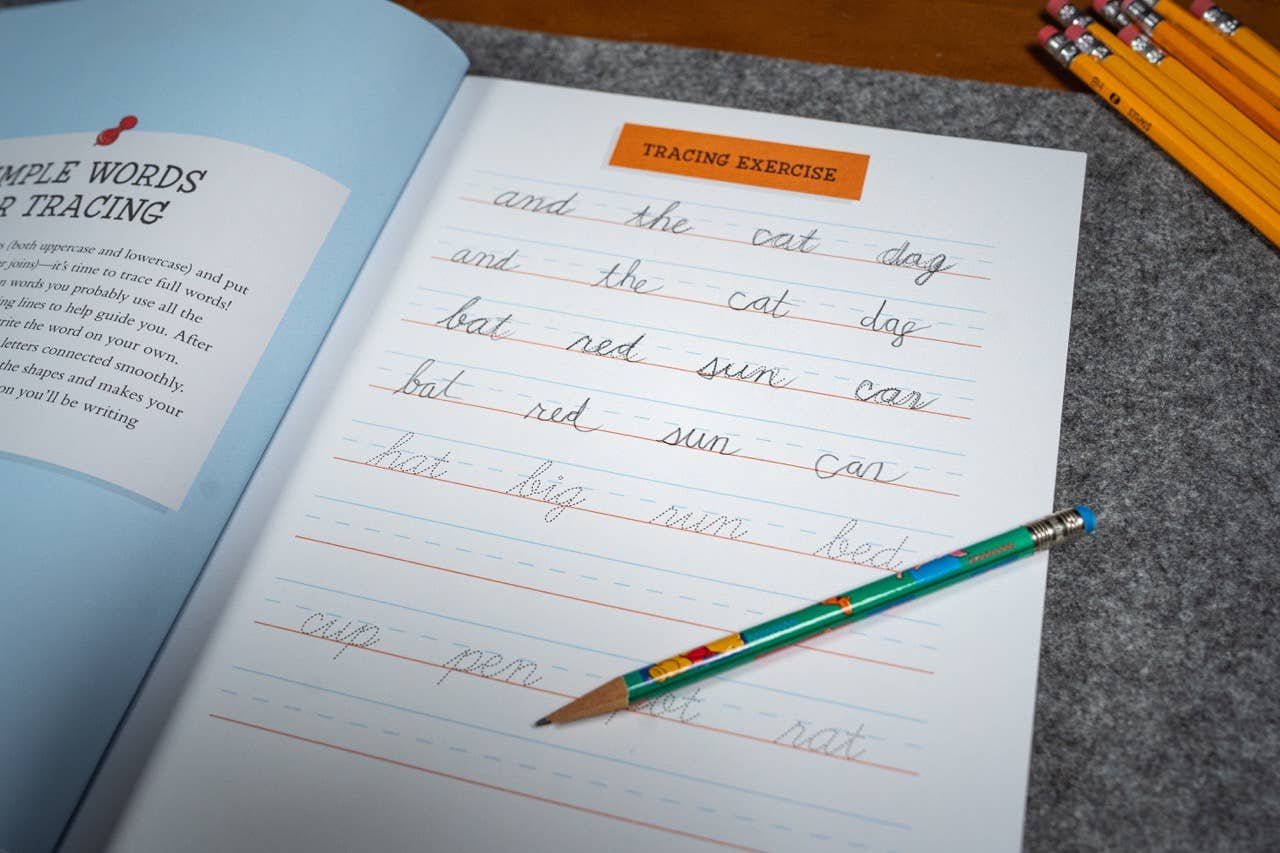 MPLE WORDS
R TRACING
s (both uppercase and lowercase) and put
er joins)—it's time to trace full words!
n words you probably use all the
ing lines to help guide you. After
rite the word on your own.
letters connected smoothly.
the shapes and makes your
on you'll be writing
TRACING EXERCISE
and the cat dag
and the cat dag
bat red sun car
bat red sun car
hat big run bed
cup pen rat